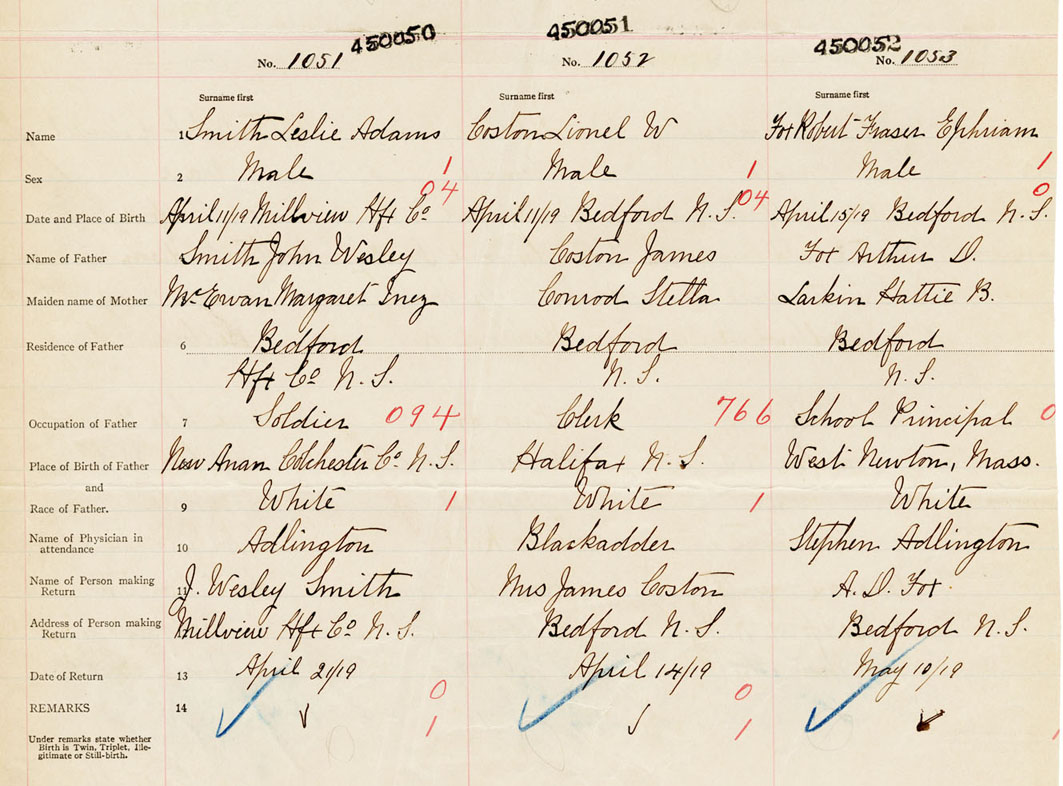 450050 450051 450052
No. 1051 No. 1052 No. 1053
Surname first Surname first Surname first
Name 1 Smith Leslie Adams Coston Lionel W Fox Robert Fraser Ephriam
Sex 2 Male 1 Male 1 Male 1
04 04 0
Date and Place of Birth April 11/19 Millview Hfx Co April 11/19 Bedford N.S. April 15/19 Bedford N.S.
Name of Father Smith John Wesley Coston James Fox Arthur D.
Maiden name of Mother McEwan Margaret Inez Conrod Stella Larkin Hattie B.
Residence of Father 6 Bedford Bedford Bedford
Hfx Co N.S. N.S. N.S.
Occupation of Father 7 Soldier 094 Clerk 766 School Principal 0
Place of Birth of Father New Anan Colchester Co N.S. Halifax N.S. West Newton, Mass.
and
Race of Father. 9 White 1 White 1 White
Name of Physician in
attendance 10 Adlington Blackadder Stephen Adlington
Name of Person making
Return 11 J. Wesley Smith Mrs James Coston A.D. Fox.
Address of Person making
Return Millview Hfx Co N.S. Bedford N.S. Bedford N.S.
Date of Return 13 April 21/19 April 14/19 May 10/19
0 0
REMARKS 14
1 1 1
Under remarks state whether
Birth is Twin, Triplet, Ille-
gitimate or Still-birth.